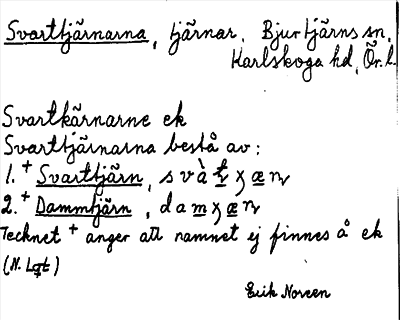 Svarttjärnarna, tjärnar, Bjurtjärns sn,
Karlskoga hd, Ör. l.
Svartkärnarne ek
Svarttjärnarna bestå av:
1. + Svarttjärn,
2. + Dammtjärn,
Tecknet + anger att namnet ej finnes å ek
Erik Noreen